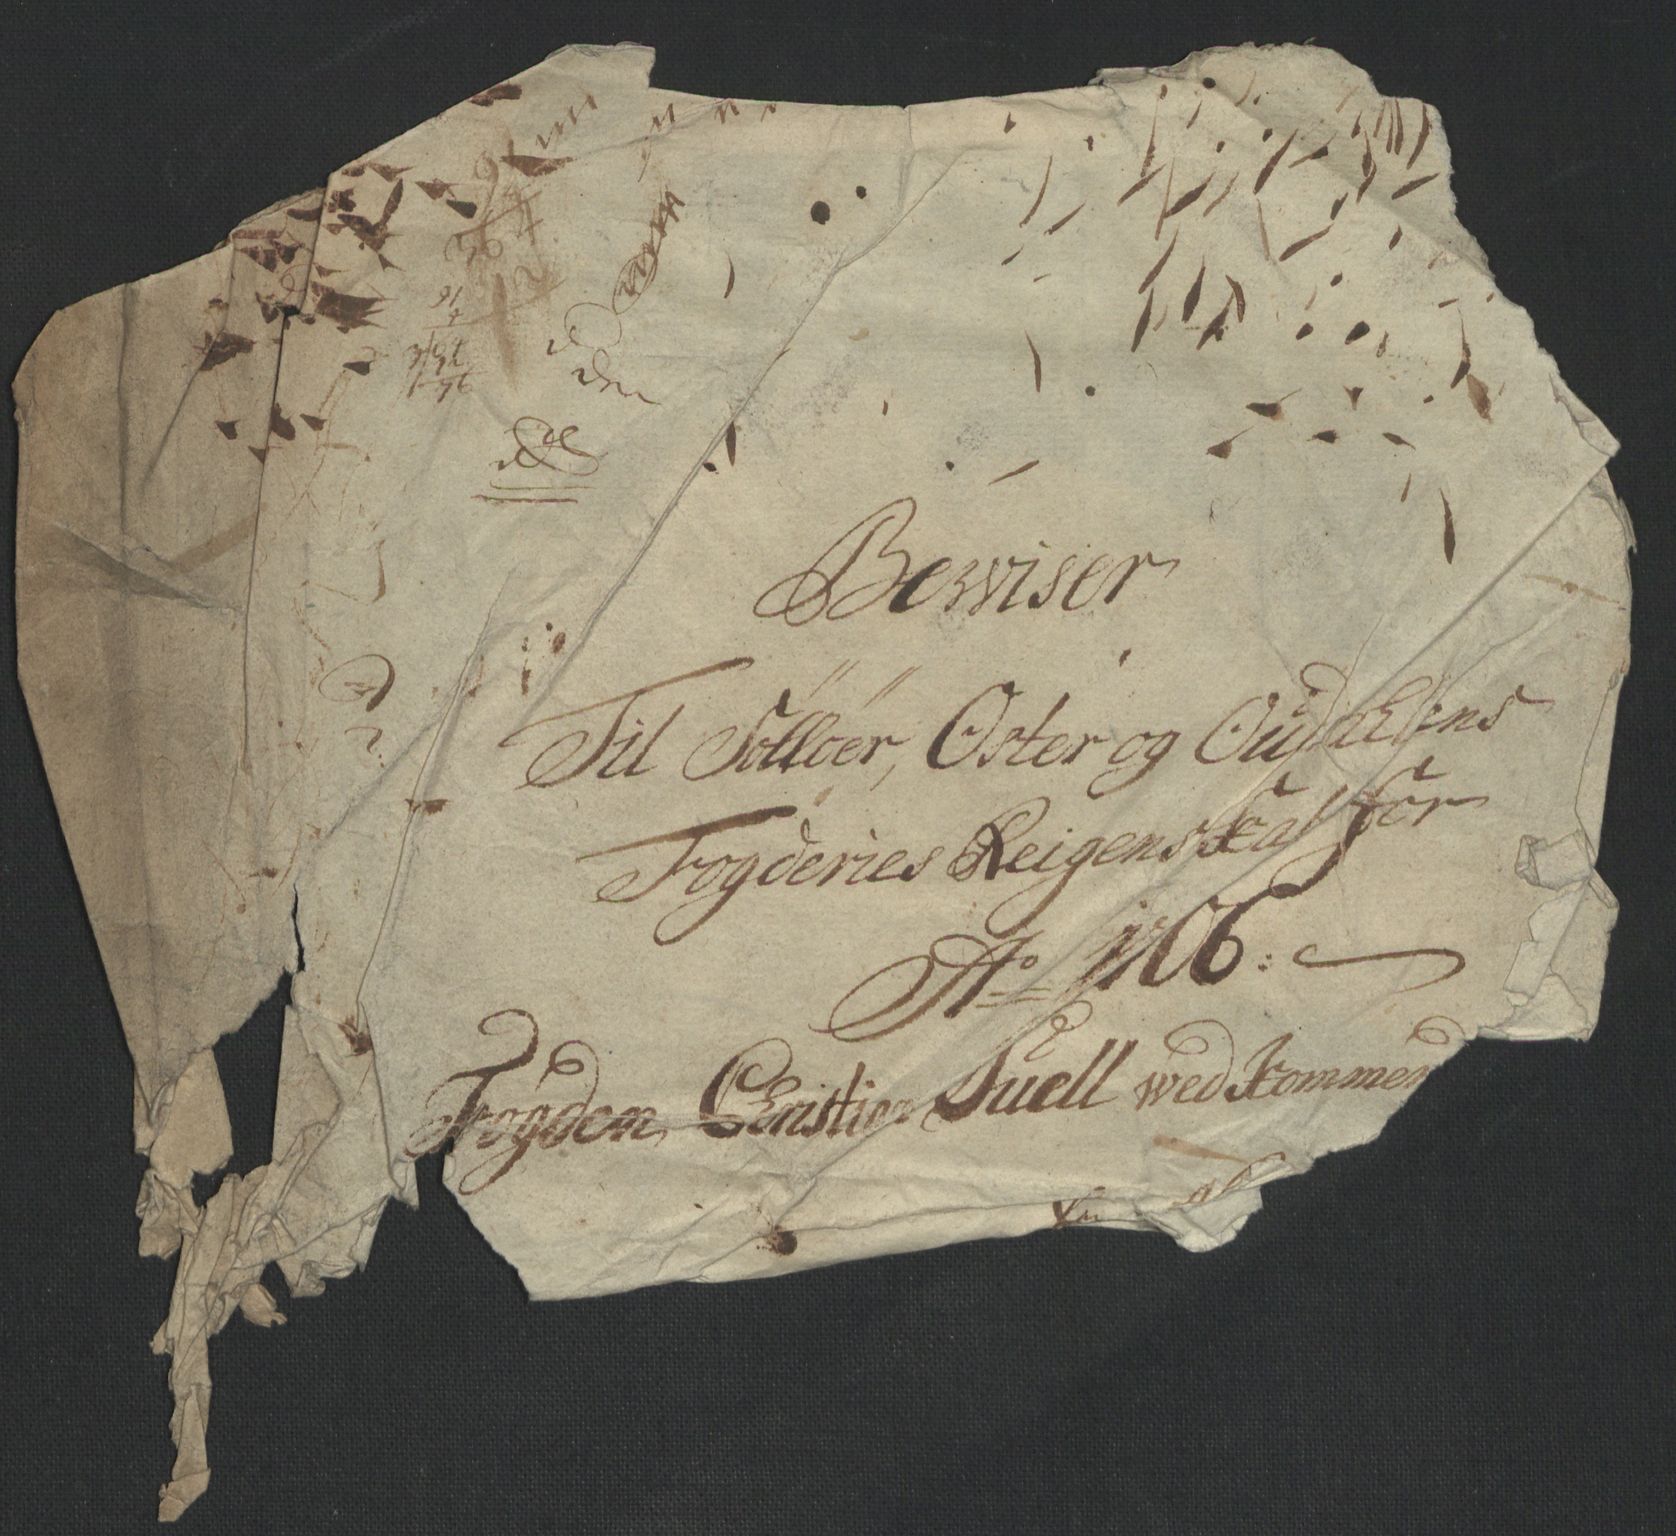 den
Bewiser
Til Sollöer, Öster og Oüdalens
Fogderies Reigenskaf for
Ao 1706:
Fogden Christian Suell wedkommen